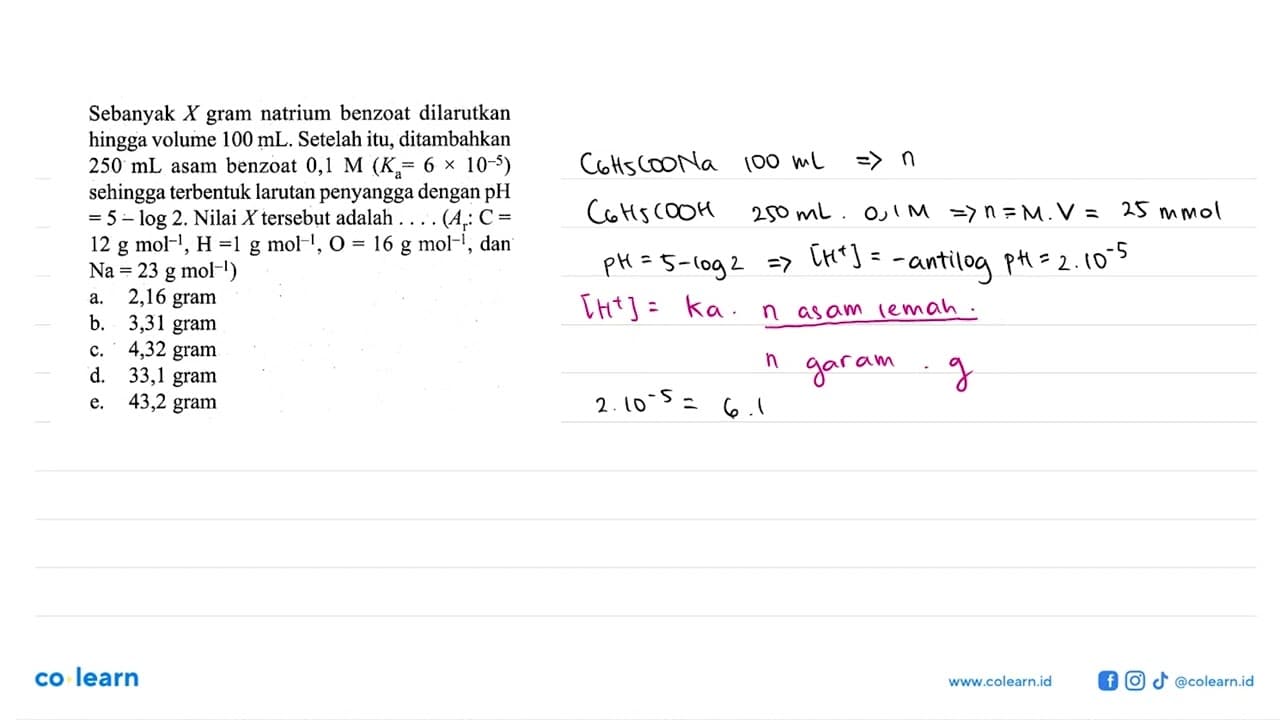 Sebanyak X gram natrium benzoat dilarutkan
hingga volume 100 mL. Setelah itu, ditambahkan
250 mL asam benzoat 0,1 M (Kₐ= 6 × 10⁻⁵)
sehingga terbentuk larutan penyangga dengan pH
= 5 – log 2. Nilai X tersebut adalah . . . . (Aᵣ: C =
12 g mol⁻¹, H =1 g mol⁻¹, O = 16 g mol⁻¹, dan
Na = 23 g mol⁻¹)
a. 2,16 gram
b. 3,31 gram
c. 4,32 gram
d. 33,1 gram
e. 43,2 gram
C6H5COONa 100 mL => n
C6H5COOH 250 mL. 0,1 M => n = M.V = 25 mmol
pH = 5-log 2 => [H⁺] = -antilog pH = 2.10⁻⁵
[H⁺] = ka. n asam lemah.
n garam . g
2.10⁻⁵ = 6.1
co learn
www.colearn.id
@colearn.id